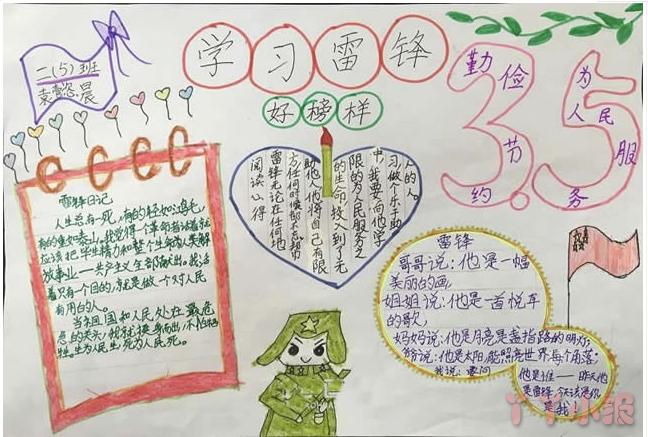 二(5)班
学习雷锋
好榜样
勤俭节约
3.5
为人民服务
雷锋日记
人生总有一死，有的轻如鸿毛，
有的重如泰山。我觉得一个革命者活着就
应该把毕生精力和整个生命为人类解
放事业——共产主义全部献出。我活
着只有一个目的，就是做一个对人民
有用的人。
当祖国和人民处在最危
急的关头，我就挺身而出，不怕牺
牲生为人民生，死为人民死。
阅读心得
雷锋无论在任何地
方任何时候都不忘帮
助他人他将自己有限
的生命投入到了无
限的为人民服务之
中，我要向他学
习，做个乐于助
人的人。
雷锋
哥哥说：他是一幅
美丽的画，
姐姐说：他是一首悦耳
的歌，
妈妈说：他是月亮是盏指路的明灯；
爷爷说：他是太阳，能照亮世界每个角落；
我说：
他是谁——昨天他
是雷锋，今天该是你
是我！
丫丫小报